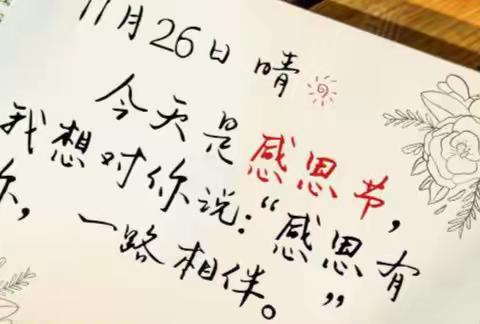 11月26日 晴
今天是感恩节，
我想对你说：“感恩有
你，一路相伴。”